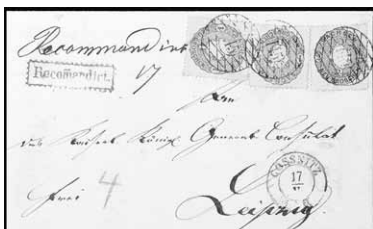 Recommandirt
Recomandirt.
17
An
das Kaiserl. Königl. General Consulat
frei
4
GOSSNITZ
17
Leipzig.